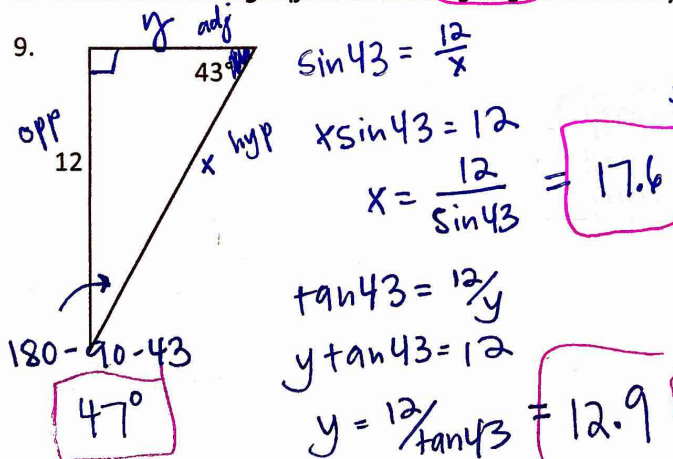 9.
y adj
43°
opp
12
x hyp
180-90-43
47°
sin43 = 12/x
xsin43 = 12
x = 12/sin43 = 17.6
tan43 = 12/y
y tan43 = 12
y = 12/tan43 = 12.9